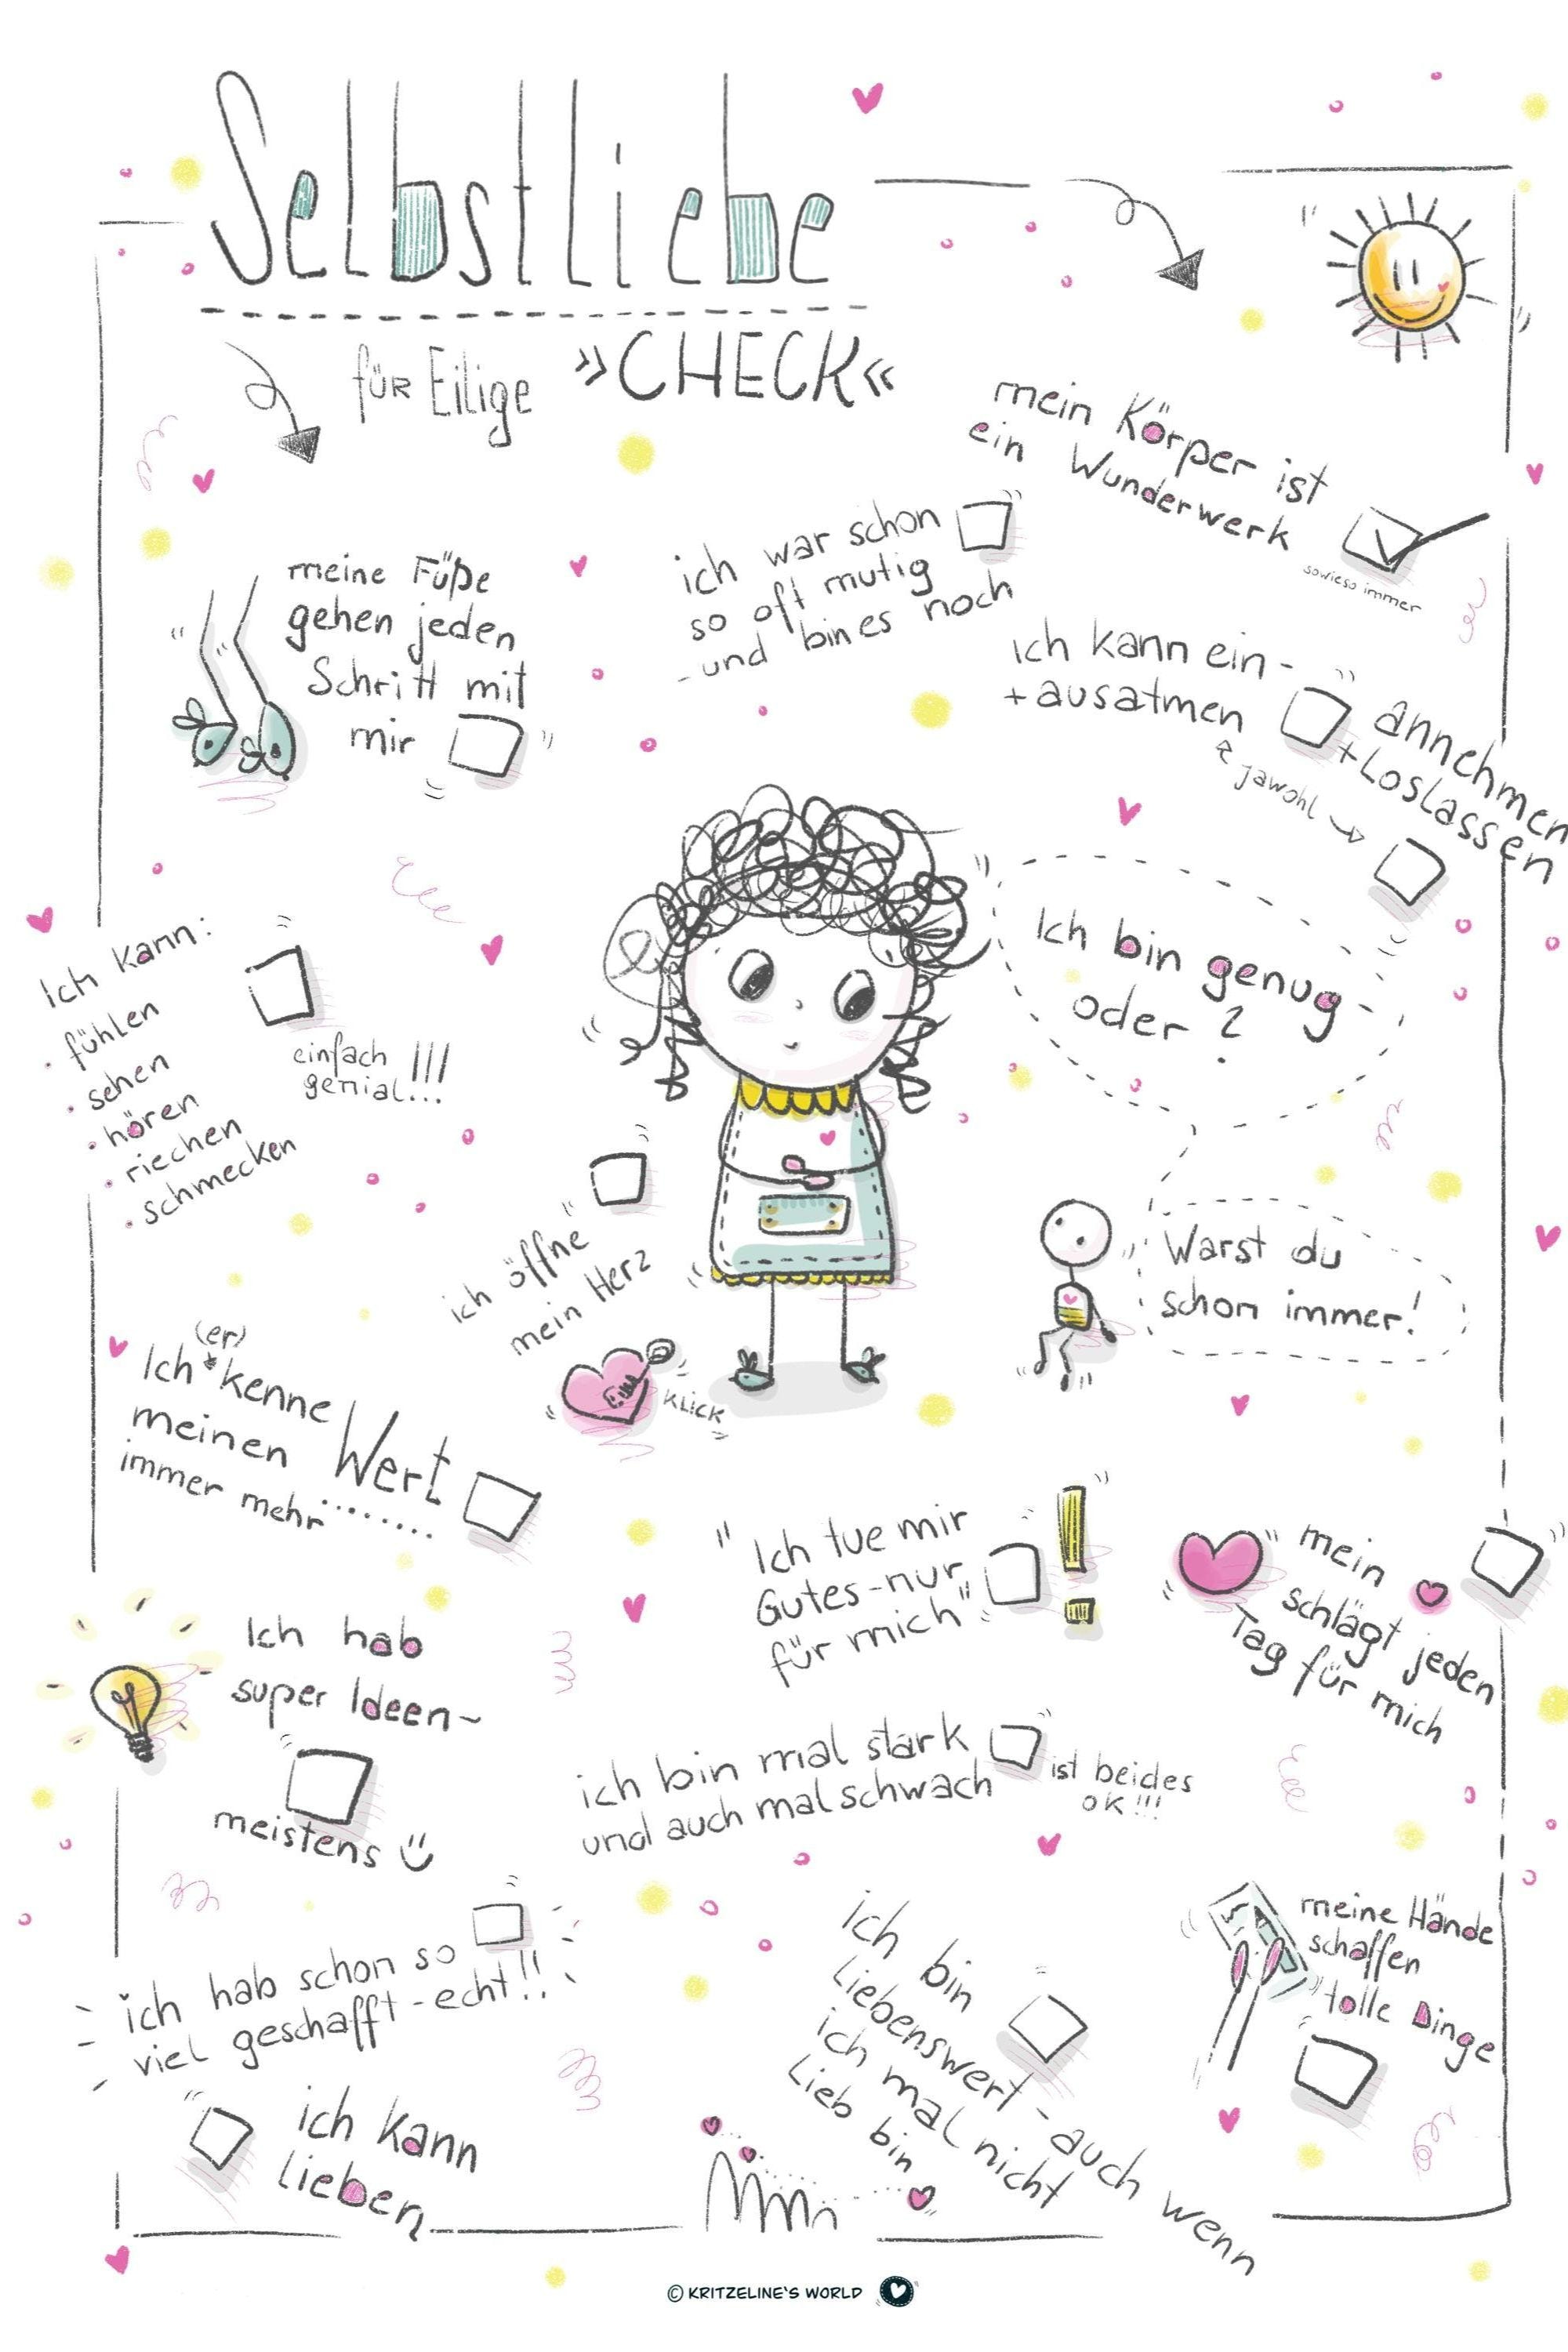 Selbstliebe
für Eilige »CHECK«
mein Körper ist
ein Wunderwerk
sowieso immer
ich war schon
so oft mutig
- und bin es noch
meine Füße
gehen jeden
Schritt mit
mir
ich kann ein-
+ ausatmen
annehmen
+ Loslassen
jawohl
Ich kann:
• fühlen
• sehen
• hören
• riechen
• schmecken
einfach
genial...!!!
Ich bin genug -
oder ?
Warst du
schon immer!
ich öffne
mein Herz
KLICK
(er)
Ich * kenne
meinen Wert
immer mehr........
"Ich tue mir
Gutes - nur
für mich"
!
mein
schlägt jeden
Tag für mich
Ich hab
super Ideen~
meistens
ich bin mal stark
und auch mal schwach
ist beides
OK!!!
ich hab schon so
viel geschafft - echt!!
ich bin
liebenswert - auch wenn
ich mal nicht
Lieb bin
meine Hände
schaffen
tolle Dinge
ich kann
Lieben
© KRITZELINE'S WORLD